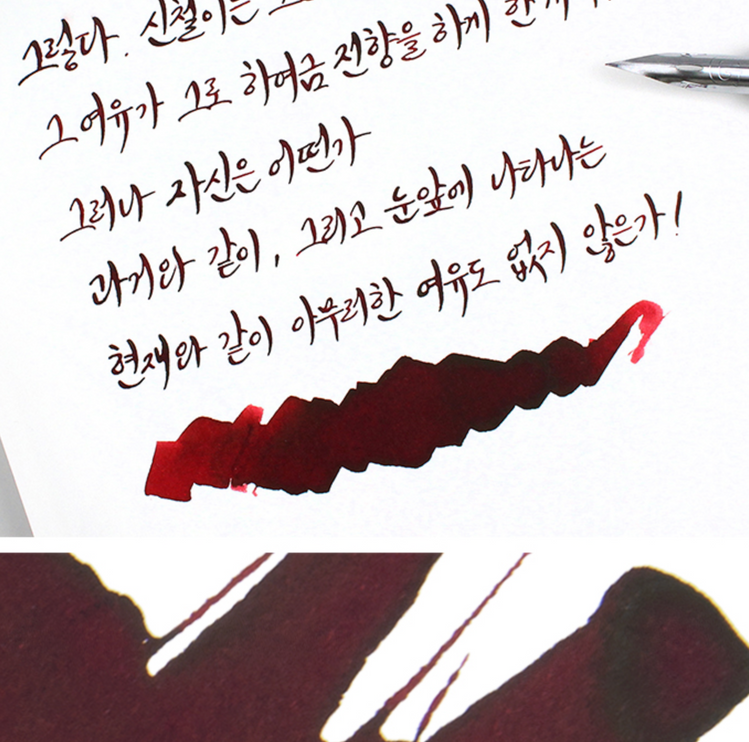 그렇다. 신철이는
그 여유가 그로 하여금 전향을 하게 한
그러나 자신은 어떤가
과거와 같이, 그리고 눈앞에 나타나는
현재와 같이 아무러한 여유도 없지 않은가!